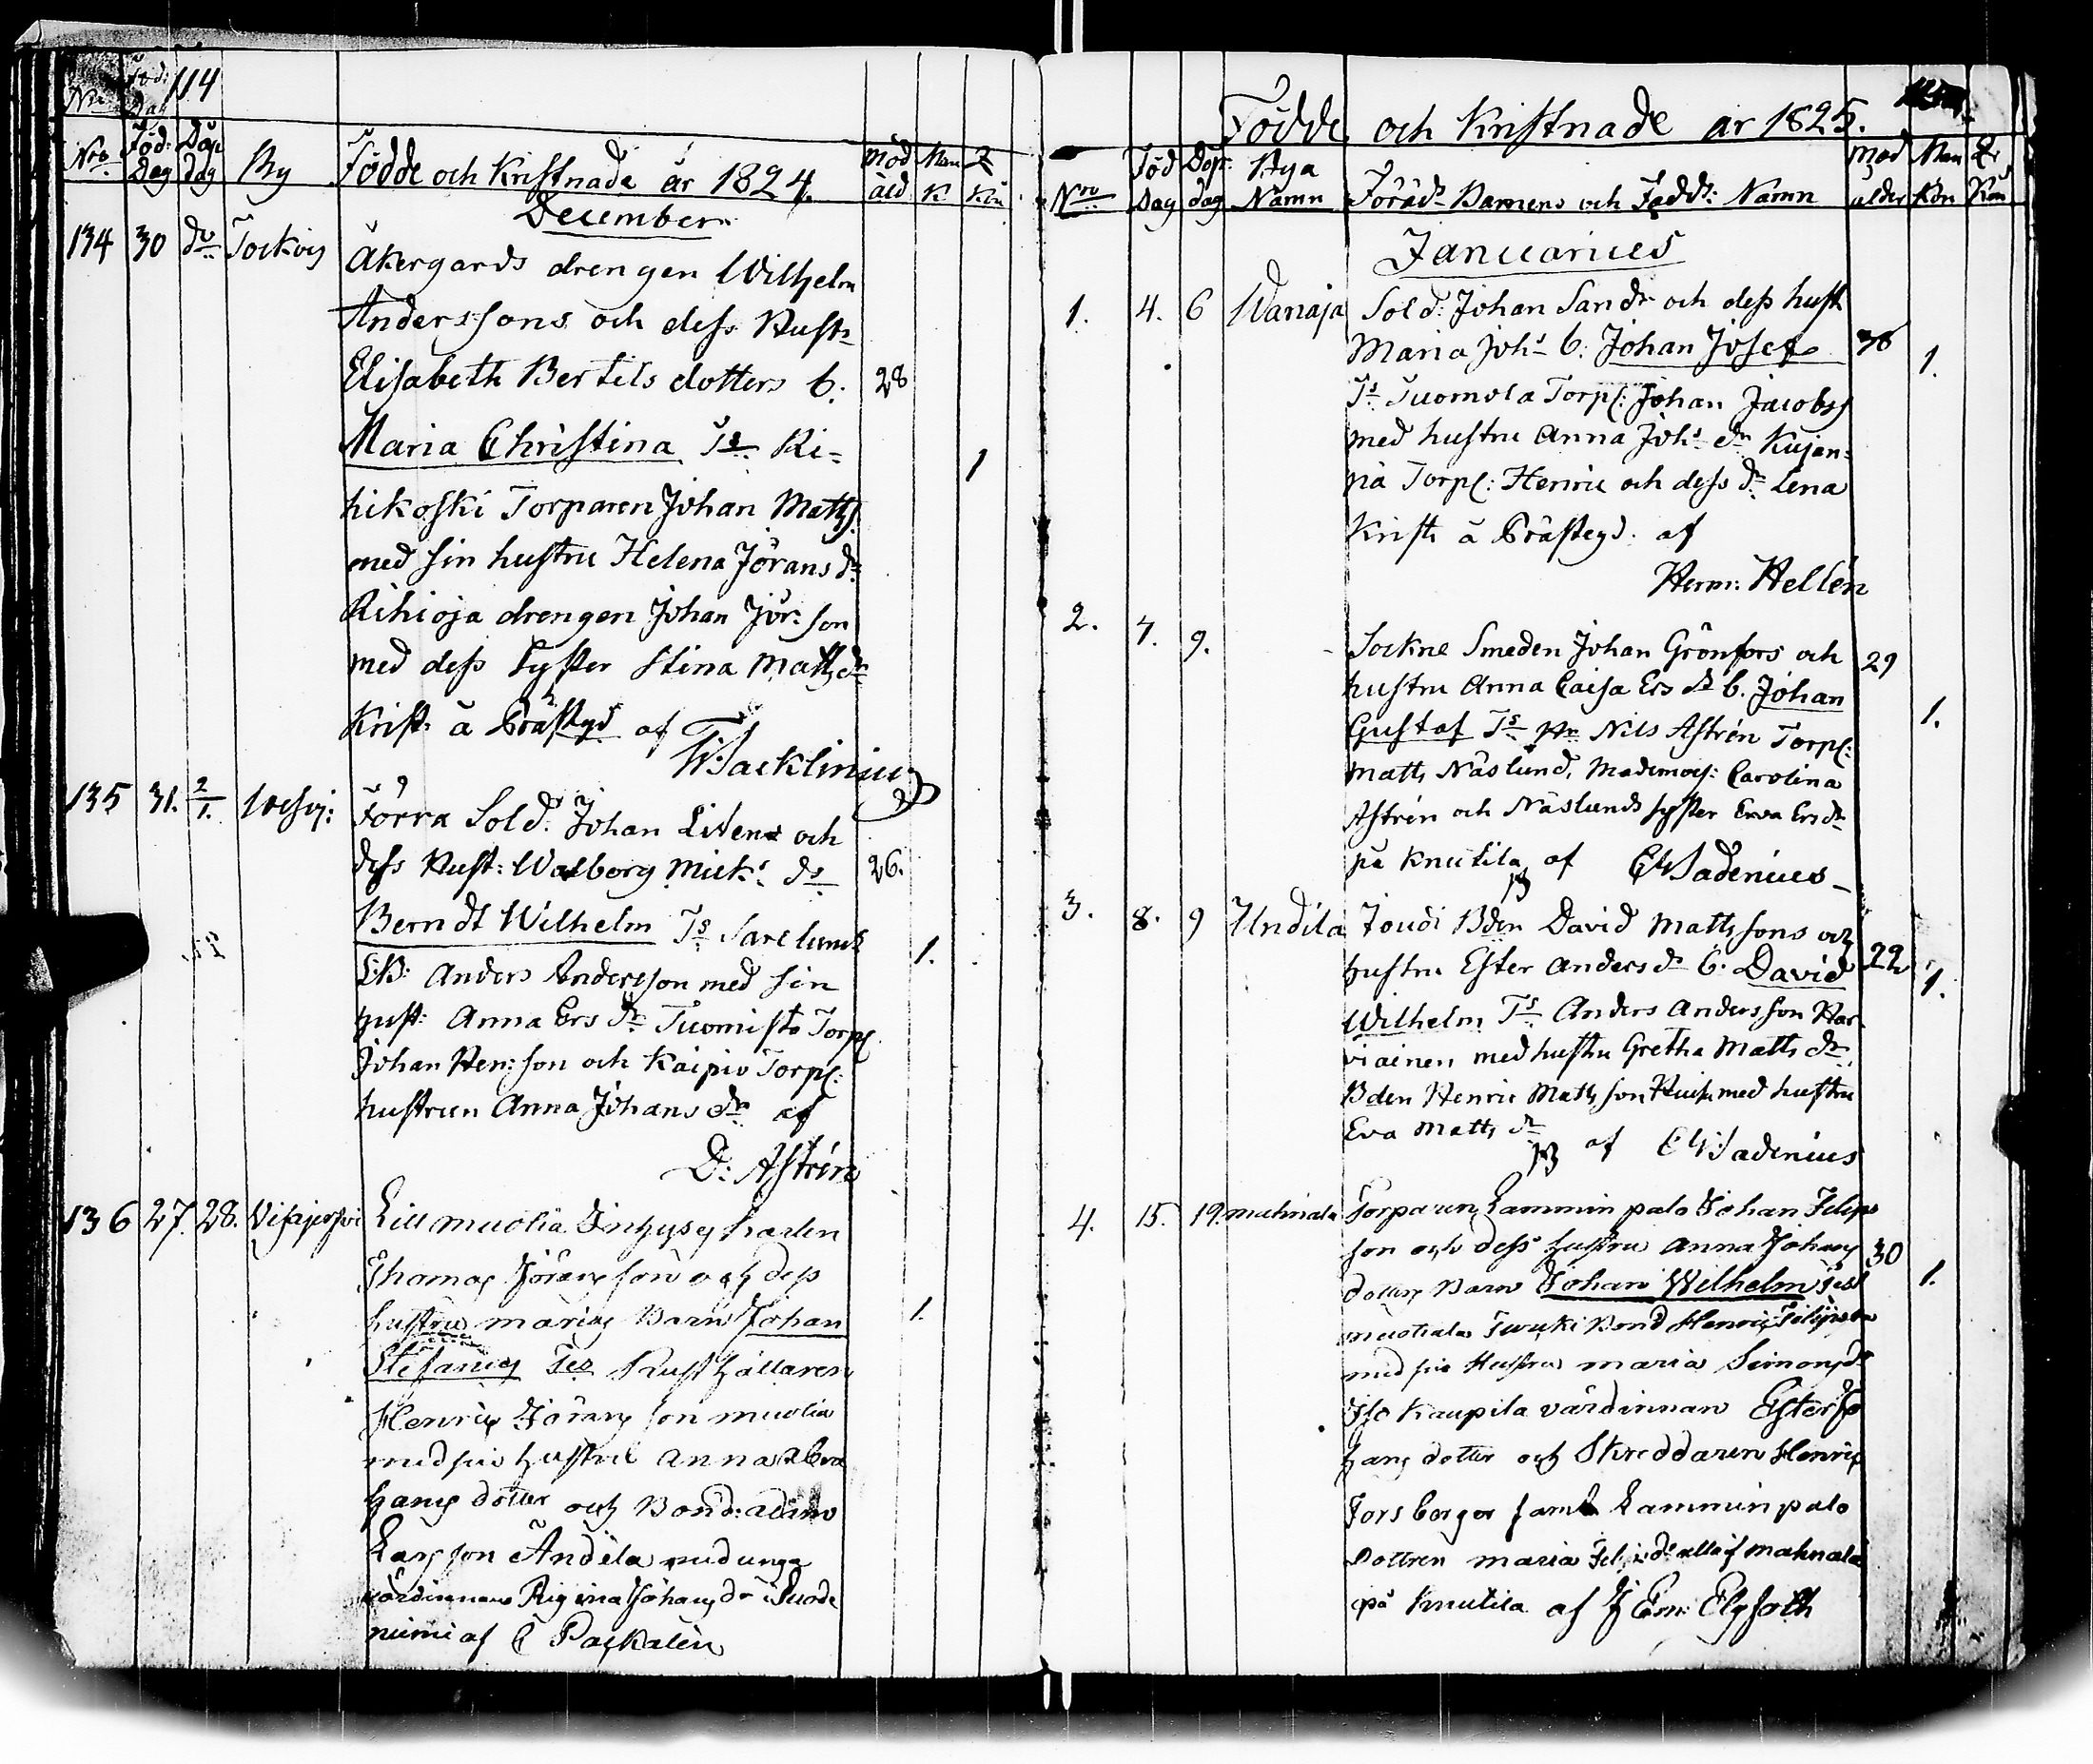 114
Nro Föd: Dag Döp dag By Födde och Kristnade år 1824. Mod åld Man K. Kön
December
134 30 do Tockois Åkergards drengen Wilhelm
Anderssons och dess Hustr
Elisabeth Bertils dotters b. 28
Maria Christina Ts Ri= 1
hikoski Torparen Johan Matts
med sin hustru Helena Jörans dr
Rihioja drengen Johan Jör: son
med dess Syster Stina Matts dr
Krist: å Prästgd af
Wacklinius
135 31. 2/1. Förra Sold: Johan Litens och
dess Hust: Walborg Mick: dr 26.
Berndt Wilhelm Ts 1.
Anders Andersson med sin
hust: Anna Ers dr Tuomisto Torp:
Johan Hen: son och Kaipio Torp:
hustrun Anna Johans dr af
D: Astrén
136 27. 28. Visajerfvi
Thomas Jörans son och dess
hustrus Marias Barn Johan 1.
Stefanus Tes Rusthållaren
Henric Jörans son muolia
med sin hustru Anna
hams dotter och Bond: Adam
Lars son Ändila med unga
värdinnan Regina Johans dr i Suode
niemi af C Paskalén
Födde och Kristnade år 1825.
Nro Föd Dag Döp: dag Bya Namn Föräd: Barnens och Fadd: Namn Mod ålder Man Kön Qv Kön
Januarius
1. 4. 6 Wanaja Sold: Johan Sandr och dess hust
Maria Johs b: Johan Josef 38 1.
Ts Tuomola Torp: Johan Jacobss
med hustru Anna Johs dr Kujan=
på Torp: Henric och dess dr Lena
Krist: å Prästegd. af
Herm: Hellén
2. 7. 9. Sockne Smeden Johan Grönfors och 29
hustru Anna Caisa Ers dr b. Johan
Gustaf Ts Hr Nils Astrén Torp: 1.
Matts Näslund, Mademois: Carolina
Astrén och Näslunds syster Eva Ers dr
på Knutila af C Wadenius
3. 8. 9 Undila Joudi Bden David Mattssons och
hustru Ester Anders dr b. David 22 1.
Wilhelm Ts Anders Andersson Har
viainen med hustru Gretha Matts dr
Bden Henric Mattsson med hustru
Eva Matts dr
af C Wadenius
4. 15. 19. Mahnala Torparen Lamminpalo Johan Felips
son och dess hustru Anna Johans 30
dotters Barn Johan Wilhelm Test 1.
Bond Henric Filipson
med sin Hustru Maria Simons dr
Iso Kaupila värdinnan Ester Jo
hans dotter och Skreddaren Henric
Forsberger samt Lamminpalo
Dottren Maria Felips dr alla af Mahnala
på Knutila af J Em: Elgfoth